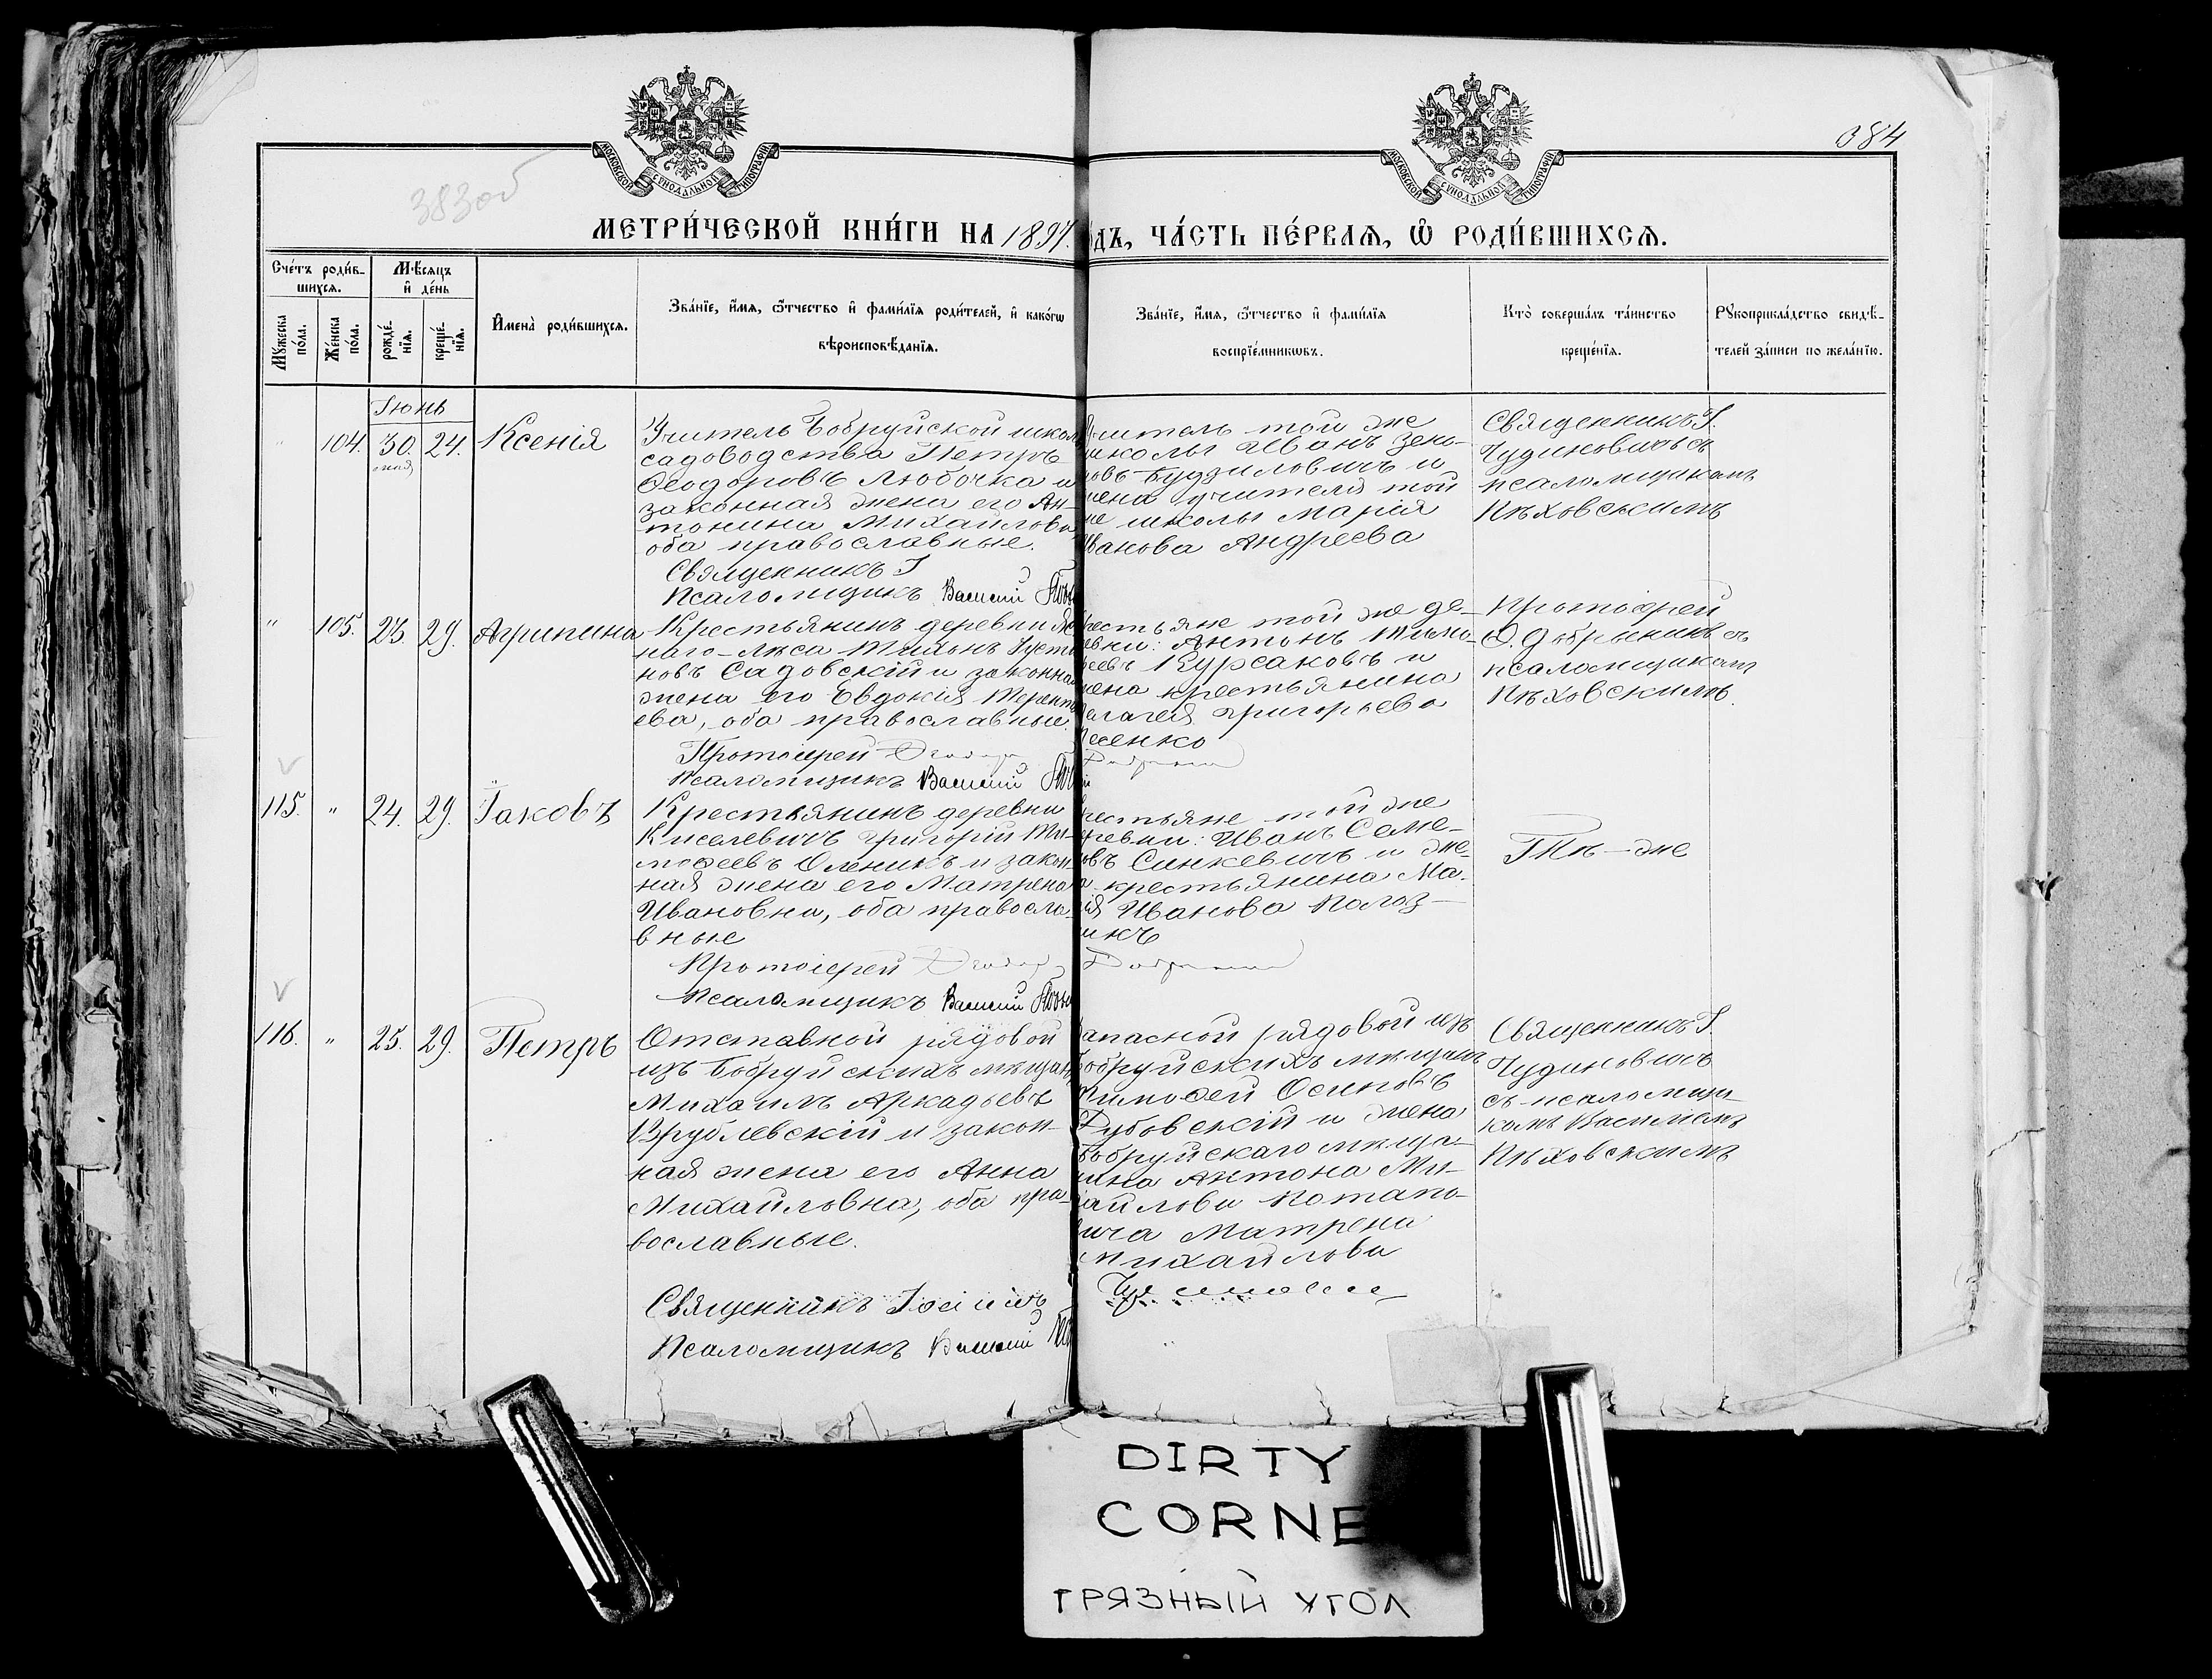 МОСКОВСКОЙ СѴНОДАЛЬНОЙ ТИПОГРАФІИ
МОСКОВСКОЙ СѴНОДАЛЬНОЙ ТИПОГРАФІИ
384
383об
МЕТРИ́ЧЕСКОЙ КНИ́ГИ НА 1897.
ДЪ, ЧА́СТЬ ПЕ́РВАѦ, Ѿ РОДИ́ВШИХСѦ.
Сче́тъ роди́в-
шихсѧ.
Мѣ́сѧцъ
и҆ де́нь
Мꙋ́жеска
по́ла.
Же́нска
по́ла.
рожде́-
нїѧ.
креще́-
нїѧ.
И҆мена̀ роди́вшихсѧ.
Зва́нїе, и҆́мѧ, ѻ҆́тчество и҆ фами́лїѧ роди́телей, и҆ како́гѡ
вѣроисповѣ́данїѧ.
Зва́нїе, и҆́мѧ, ѻ҆́тчество и҆ фами́лїѧ
воспрїе́мникѡвъ.
Кто̀ соверша́лъ та́инство
креще́нїѧ.
Рꙋкоприкла́дство свидѣ́-
телей за́писи по жела́нїю.
Іюнь
" 104. 30. 24. Ксенія
мая
Учитель Бобруйской школ
садоводства Петръ
Ѳеодоровъ Любочка и
законная жена его Ан-
тонина Михайлова
оба православные.
Священникъ І
Псаломщикъ Василій
читель той же
школы Иванъ Зено-
новъ Будзиловичъ и
жена учителя той
же школы Марія
Иванова Андреева
Священникъ І.
Чудиновичъ съ
псаломщикомъ
Пѣховскимъ
" 105. 23. 29. Агрипина
Крестьянинъ деревни
наго-Лѣса Тихонъ Усти
новъ Садовскій и законна
жена его Евдокія Терент
ева, оба православные.
Протоіерей Ѳеодоръ
Псаломщикъ Василій
рестьяне той же де-
евни: Антонъ Тимо-
ѳеевъ Курсаковъ и
жена крестьянина
Пелагея Григорьева
Лесенко
Протоіерей
Ѳ. Добрынинъ съ
псаломщикомъ
Пѣховскимъ.
115. " 24. 29. Іаковъ
Крестьянинъ деревни
Киселевичъ Григорій Ти-
моѳеевъ Оленикъ и закон
ная жена его Матрена
Ивановна, оба правосла-
вные
Протоіерей Ѳеодоръ
Псаломщикъ Василій
рестьяне той же
еревни: Иванъ Семе-
овъ Синкевичъ и же-
а крестьянина Ма-
ія Иванова Полоз-
икъ
Тѣ-же
116. " 25. 29. Петръ
Отставной рядовой
изъ Бобруйскихъ мѣщанъ
Михаилъ Аркадьевъ
Врублевскій и закон-
ная жена его Анна
Михайловна, оба пра-
вославные.
Священникъ Іоаннъ
Псаломщикъ Василій
Запасной рядовой изъ
Бобруйскихъ мѣщанъ
Тимоѳей Осиповъ
Дубовскій и жена
Бобруйскаго мѣща-
нина Антона Ми-
хайлова Потапо-
вича Матрена
Михайлова
Священникъ І.
Чудиновичъ
съ псаломщи-
комъ Василіемъ
Пѣховскимъ
DIRTY
CORNE
ГРЯЗНЫЙ УГОЛ